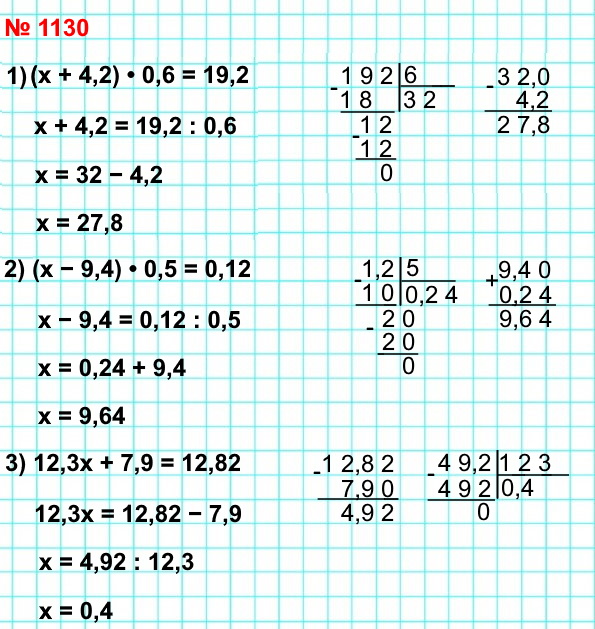 № 1130
1) (x + 4,2) • 0,6 = 19,2
x + 4,2 = 19,2 : 0,6
x = 32 − 4,2
x = 27,8
-192|6
18 |32
-12
12
0
-32,0
4,2
27,8
2) (x − 9,4) • 0,5 = 0,12
x − 9,4 = 0,12 : 0,5
x = 0,24 + 9,4
x = 9,64
-1,2|5
10|0,24
-20
20
0
+9,40
0,24
9,64
3) 12,3x + 7,9 = 12,82
12,3x = 12,82 − 7,9
x = 4,92 : 12,3
x = 0,4
-12,82
7,90
4,92
-49,2|123
492|0,4
0